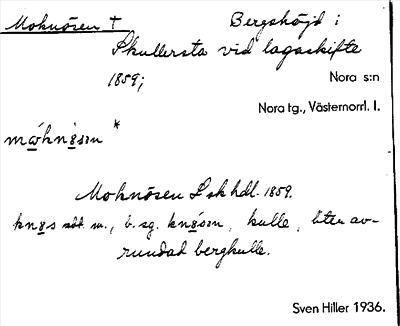 Moknösen † Bergshöjd i
Skullersta vid lagaskifte
1859; Nora s:n
Nora tg., Västernorrl. l.
Moknösen Lskhdl. 1859.
m., b. sg. kulle, liten av-
rundad bergkulle.
Sven Hiller 1936.